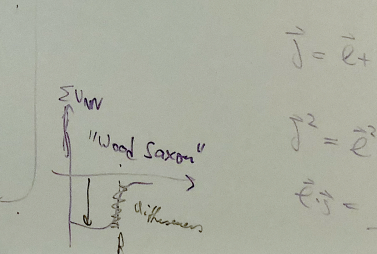 ΣV_NN
"Wood Saxon"
diffuseness
j⃗ = ℓ⃗ +
j⃗² = ℓ⃗²
ℓ⃗·s⃗ =